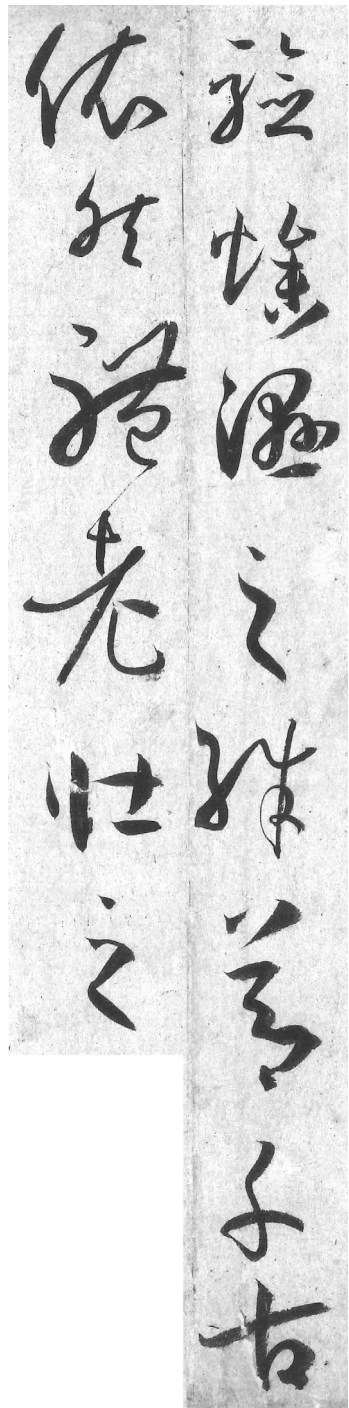 驗燥濕之殊節千古
依然體老壯之